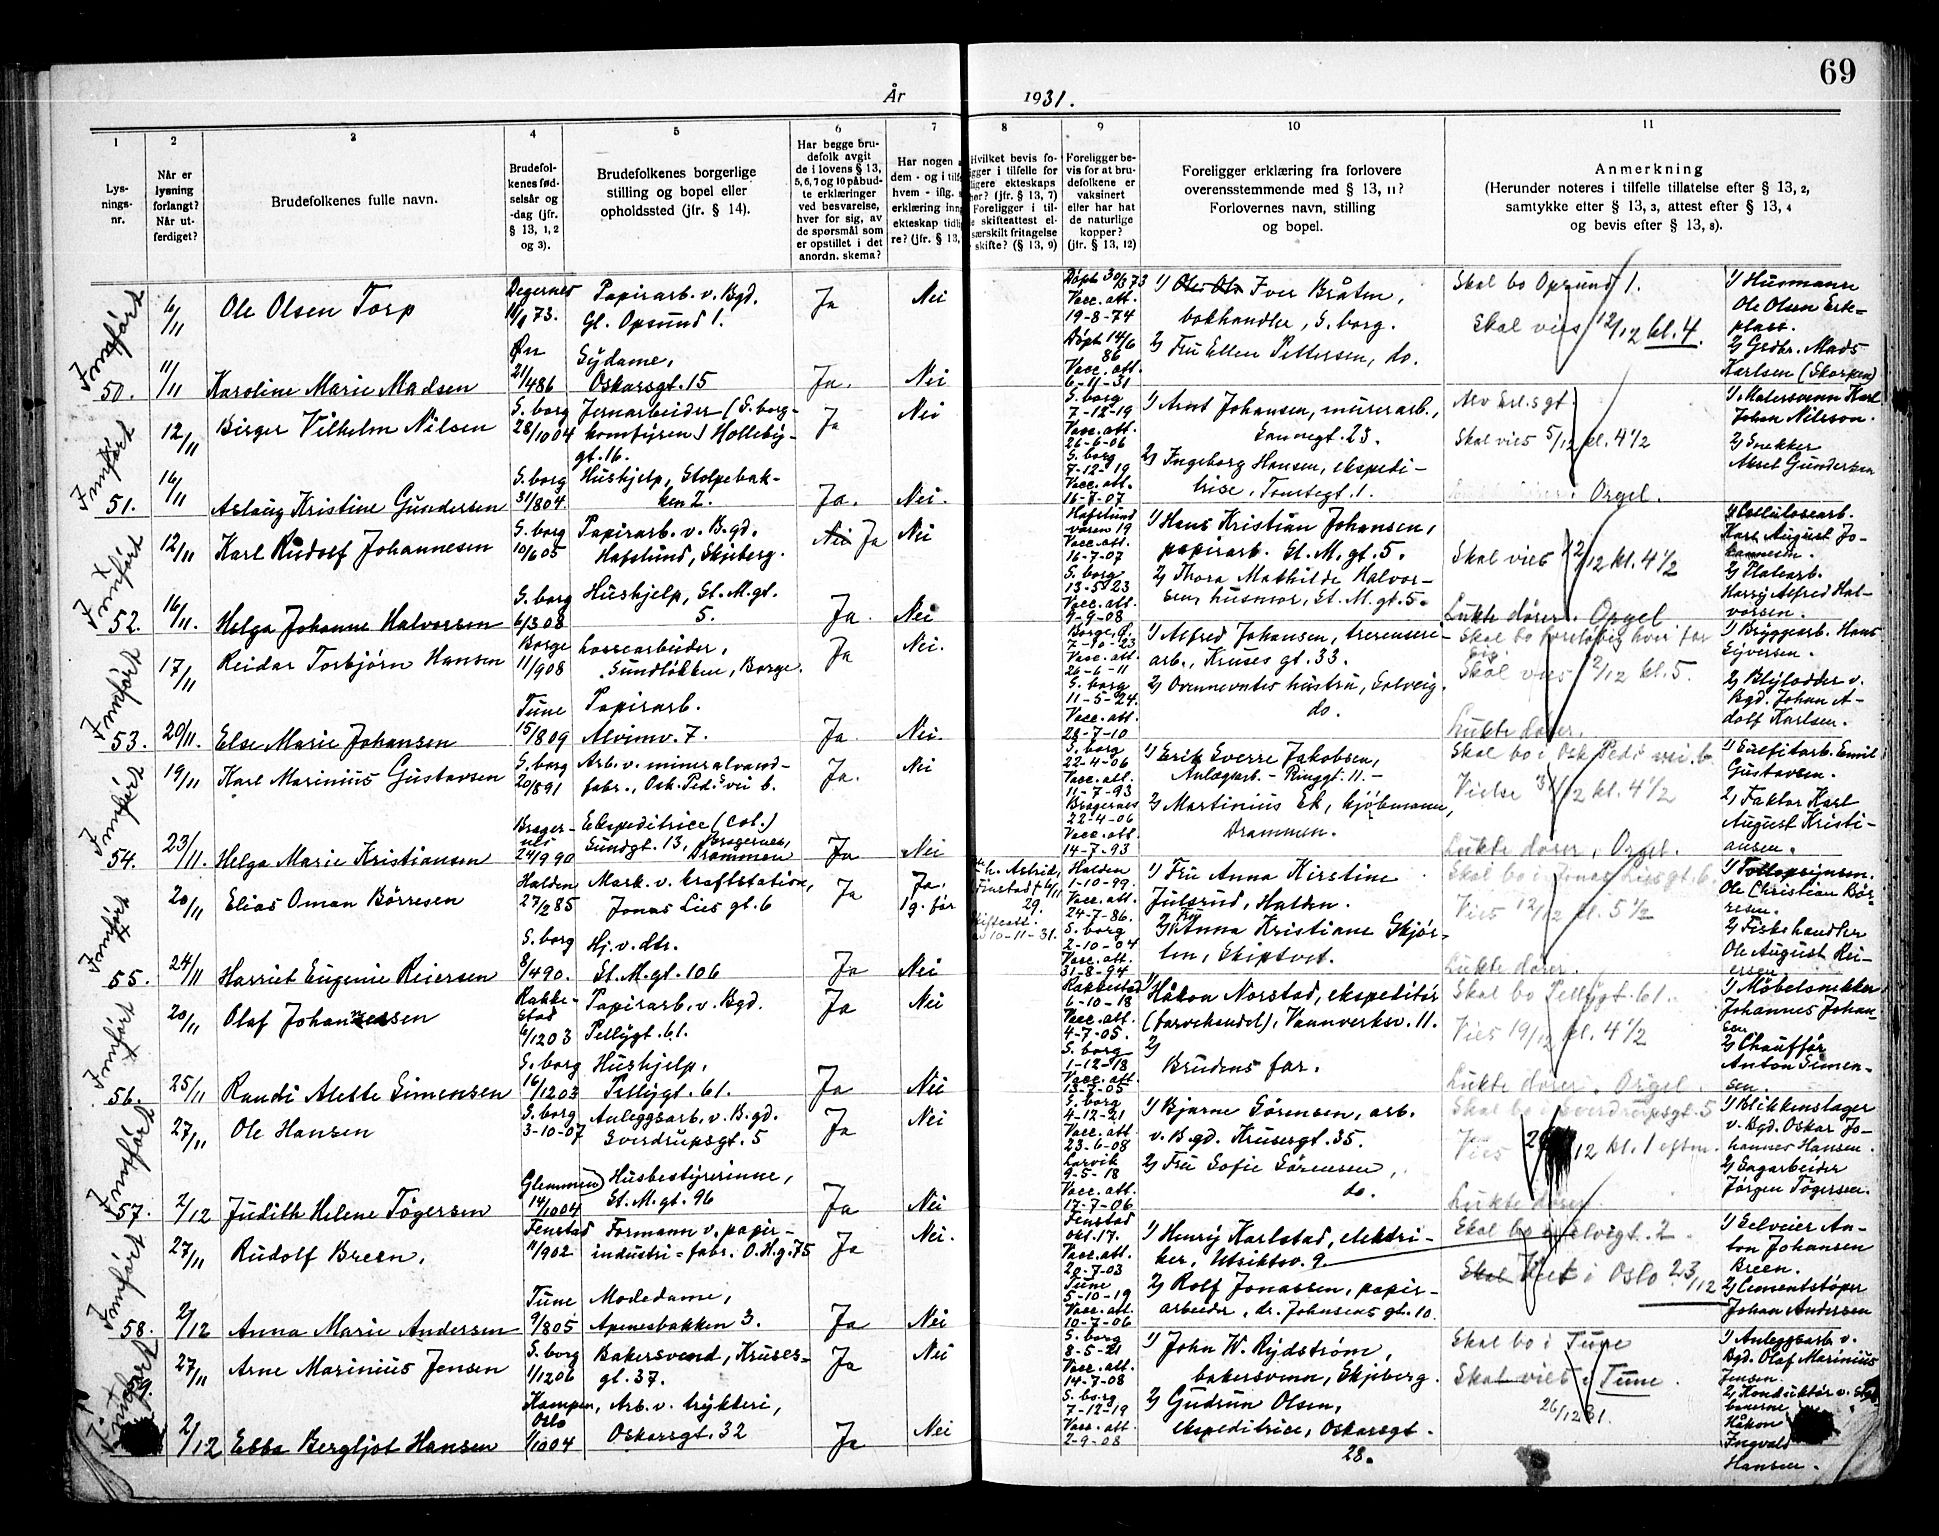 69
År 1931.
1 2 3 4 5 6 7 8 9 10 11
Lysningsnr.
Når er lysning forlangt? Når utferdiget?
Brudefolkenes fulle navn.
Brudefolkenes fødselsår og -dag (jfr. § 13, 1, 2 og 3).
Brudefolkenes borgerlige stilling og bopel eller opholdssted (jfr. § 14).
Har begge brudefolk avgit de i lovens § 13, 5, 6, 7 og 10 påbudte erklæringer ved besvarelse, hver for sig, av de spørsmål som er opstillet i det anordn. skema?
Foreligger bevis for at brudefolkene er vaksinert eller har hat de naturlige kopper? (jfr. § 13, 12)
Foreligger erklæring fra forlovere overensstemmende med § 13, 11? Forlovernes navn, stilling og bopel.
Anmerkning
(Herunder noteres i tilfelle tillatelse efter § 13, 2, samtykke efter § 13, 3, attest efter § 13, 4 og bevis efter § 13, 8).
Innført
50.
6/11 Ole Olsen Torp
Degernes 73.
Papirarb. v. Bgd.
Gl. Opsund 1.
Ja Nei
Døpt 30/3 73
Vacc. att.
19-8-74
1) Iver Bråten,
bokhandler, S. borg.
Skal bo Opsund 1.
Skal vies 12/12 kl. 4.
1) Husmann
Ole Olsen
plass.
11/11 Karoline Marie Madsen
Øn
21/486
Sydame,
Oskarsgt. 15
Ja. Nei
Døpt 14/6
86
Vacc. att.
6-11-31
2) Fru Ellen Pettersen, do.
2) Grdbr. Mads
Karlsen (Skorpen)
Innført
51.
12/11 Birger Vilhelm Nilsen
S. borg
28/1004
Jernarbeider (S. borg-
komfyren) Holleby-
gt. 16.
Ja Nei
S. borg
7-12-19
Vacc. att.
26-6-06
1) Arnt Johansen, murerarb.,
Sannegt. 23.
Skal vies 5/12 kl. 4 1/2
1) Malersvenn Karl
Johan Nilsson.
16/11 Aslaug Kristine Gundersen
S. borg
31/804.
Hushjelp, Stolpebak-
ken 2.
Ja. Nei.
S. borg
7-12-19
Vacc. att.
16-7-07
2) Ingeborg Hansen, ekspedi-
trise, Tomtegt. 1.
Orgel.
2) Snekker
Aksel Gundersen
Innført
52.
12/11 Karl Rudolf Johannesen
S. borg
10/605
Papirarb. v. B.gd.
Hafslund, Skjeberg.
Nei Ja Nei
Hafslund
våren 19
Vacc. att.
16-7-07
1) Hans Kristian Johansen,
papirarb. St. M. gt. 5.
Skal vies 12/12 kl. 4 1/2
1) Cellulosearb.
Karl August Jo-
hannesen.
16/11. Helga Johanne Halvorsen
S. borg
6/308
Hushjelp, St. M. gt.
5.
Ja. Nei
S. borg
13-5-23
Vacc. att.
9-9-08
2) Thora Mathilde Halvor-
sen, husmor, St. M. gt. 5.
Lukte dører. Orgel
2) Platearb.
Harry Alfred Hal-
vorsen.
Innført
53.
17/11 Reidar Torbjørn Hansen
Borge
11/908
Lossearbeider,
Sundløkken, Borge.
Ja Nei.
7-10-23
Vacc. att.
26-6-11
1) Alfred Johansen,
arb., Kruses gt. 33.
Skal bo foreløbig hver for
sig.
Skal vies 12/12 kl. 5.
1) Bryggearb. Hans
Sejversen.
20/11. Else Marie Johansen
Tune
15/809
Papirarb.
Alvimv. 7.
Ja. Nei.
S. borg
11-5-24.
Vacc. att.
28-7-10
2) Ovennevntes hustru, Solveig.
do.
Lukte dører.
Bgd. Johan A-
dolf Karlsen.
Innført
54.
19/11 Karl Marinius Gustavsen
S. borg
20/891
Arb. v. mineralvand-
fabr., Osk. Ped.s vei 6.
Ja. Nei
S. borg
22-4-06
Vacc. att.
11-7-93
1) Erik Sverre Jakobsen,
Anlægsarb. - Ringgt. 11. -
Skal bo i Osk Peds vei. 6
Vielse 31/12 kl. 4 1/2
1) Sulfitarb. Emil
Gustavsen.
23/11. Helga Marie Kristiansen
Brager-
nes
24/990
Ekspeditrice (Col.)
Sundgt. 13, Bragernes,
Drammen
Ja Nei
Bragernes
22-4-06
Vacc. att.
14-7-93
2) Martinius Ek, kjøbmann,
Drammen.
Lukte dører, Orgel.
2) Faktor Karl
August Kristi-
ansen.
Innført
55.
20/11 Elias Oman Børresen
Halden
27/285
Mask. v. kraftstation,
Jonas Lies gt. 6
Ja Ja.
1 g. før
29.
10-11-31.
Halden
1-10-99.
Vacc. att.
24-7-86.
1) Fru Anna Kirstine
Julsrud, Halden.
Skal bo i Jonas Lies gt. 6.
Vies 12/12 kl. 5 1/2
1) Toltopsynsm.
Ole Christian Bør-
resen.
24/11 Harriet Eugenie Reiersen
S. borg
8/490.
Hj. v. dtr.
St. M. gt. 106
Ja Nei
S. borg
2-10-04
Vacc. att.
31-8-94
2) Fru Anna Kristiane Skjør-
ten, Skiptvet.
Lukte dører.
2) Fiskehandler
Ole August Rei-
ersen
Innført
56.
20/11 Olaf Johannessen
Rakke-
stad
6/1203
Papirarb. v. Bgd.
Pellygt. 61.
Ja Nei
Rakkestad
6-10-18
Vacc. att.
4-7-05.
1) Håkon Norstad, ekspeditør
(farvehandel), Vannverksv. 11.
Skal bo Pellygt. 61.
Vies 19/12 kl. 4 1/2
1) Møbelsnekker
Johannes Johan-
sen
25/11 Randi Alette Simensen
S. borg
16/1203
Hushjelp,
Pellygt. 61.
Ja Nei
S. borg
1-12-18
Vacc. att.
13-7-05
2)
Brudens far.
Lukte dører. Orgel.
2) Chauffør
Anton Simen-
sen.
Innført
57.
27/11 Ole Hansen
S. borg
3-10-07
Anleggsarb. v. B.gd.
Sverdrupsgt. 5
Ja Nei
S. borg
4-12-21
Vacc. att.
23-6-08
1) Bjarne Sørensen, arb.
v. B.gd. Krusesgt. 35.
Skal bo i Sverdrupsgt. 5
Vies 12 kl. 1 efterm.
1) Blikkenslager
v. Bgd. Oskar Jo-
hannes Hansen.
2/12 Judith Helene Tøgersen
Glemmen
14/1004
Husbestyrerinne,
St. M. gt. 96
Ja Nei
Larvik
9-5-18
Vacc. att.
17-7-06
2) Fru Sofie Sørensen,
do.
Lukte dører
2) Sagarbeider
Jørgen Tøgersen.
Innført
58.
27/11 Rudolf Breen,
11/902
Formann v. papir-
industri=fabr. O. H. g. 75
Ja Nei.
okt. 17.
Vacc. att.
20-7-03
1) Henry Karlstad, elektri-
ker, Utsiktsv. 9.
Skal bo i Solvigt. 2
Skal Viet i Oslo 23/12
1) Selveier An-
ton Johansen
Breen.
2/12 Anna Marie Andersen
Tune
9/805
Modedame,
Apenesbakken 3.
Ja Nei
Tune
5-10-19
Vacc. att.
10-7-06
2) Rolf Jonassen, papir-
arbeider, dr. Johnsens gt. 10.
2) Cementstøper
Johan Andersen
Innført
59.
27/11 Arne Marinius Jensen
S. borg
1/1206
Bakersvend, Kruses-
gt. 37.
Ja Nei
S. borg
8-5-21
Vacc. att.
14-7-08
1) John W. Rydstrøm,
bakersvenn, Skjeberg.
Skal bo i Tune
Skal vies i Tune.
26/12 31.
1) Anleggsarb. v.
Bgd. Olaf Marinius
Jensen.
2/12 Ebba Bergljot Hansen
Kampen,
Oslo
1/1004
Arb. v. trykkeri,
Oskarsgt. 32
Ja Nei
S. borg
7-12-19
Vacc. att.
2-9-08
2) Gudrun Olsen,
ekspeditrice, Oskarsgt.
28.
2) Konduktør v.
Håkon
Ingvald
Hansen.